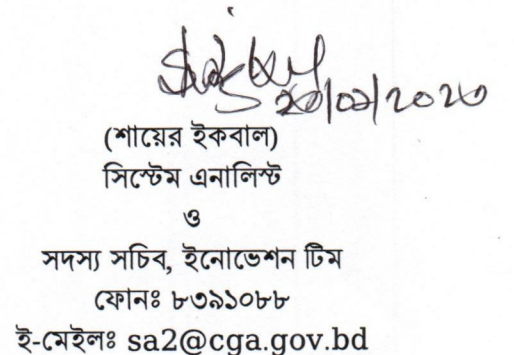 (শায়ের ইকবাল)
সিস্টেম এনালিস্ট
ও
সদস্য সচিব, ইনোভেশন টিম
ফোনঃ ৮৩৯১০৮৮
ই-মেইলঃ sa2@cga.gov.bd